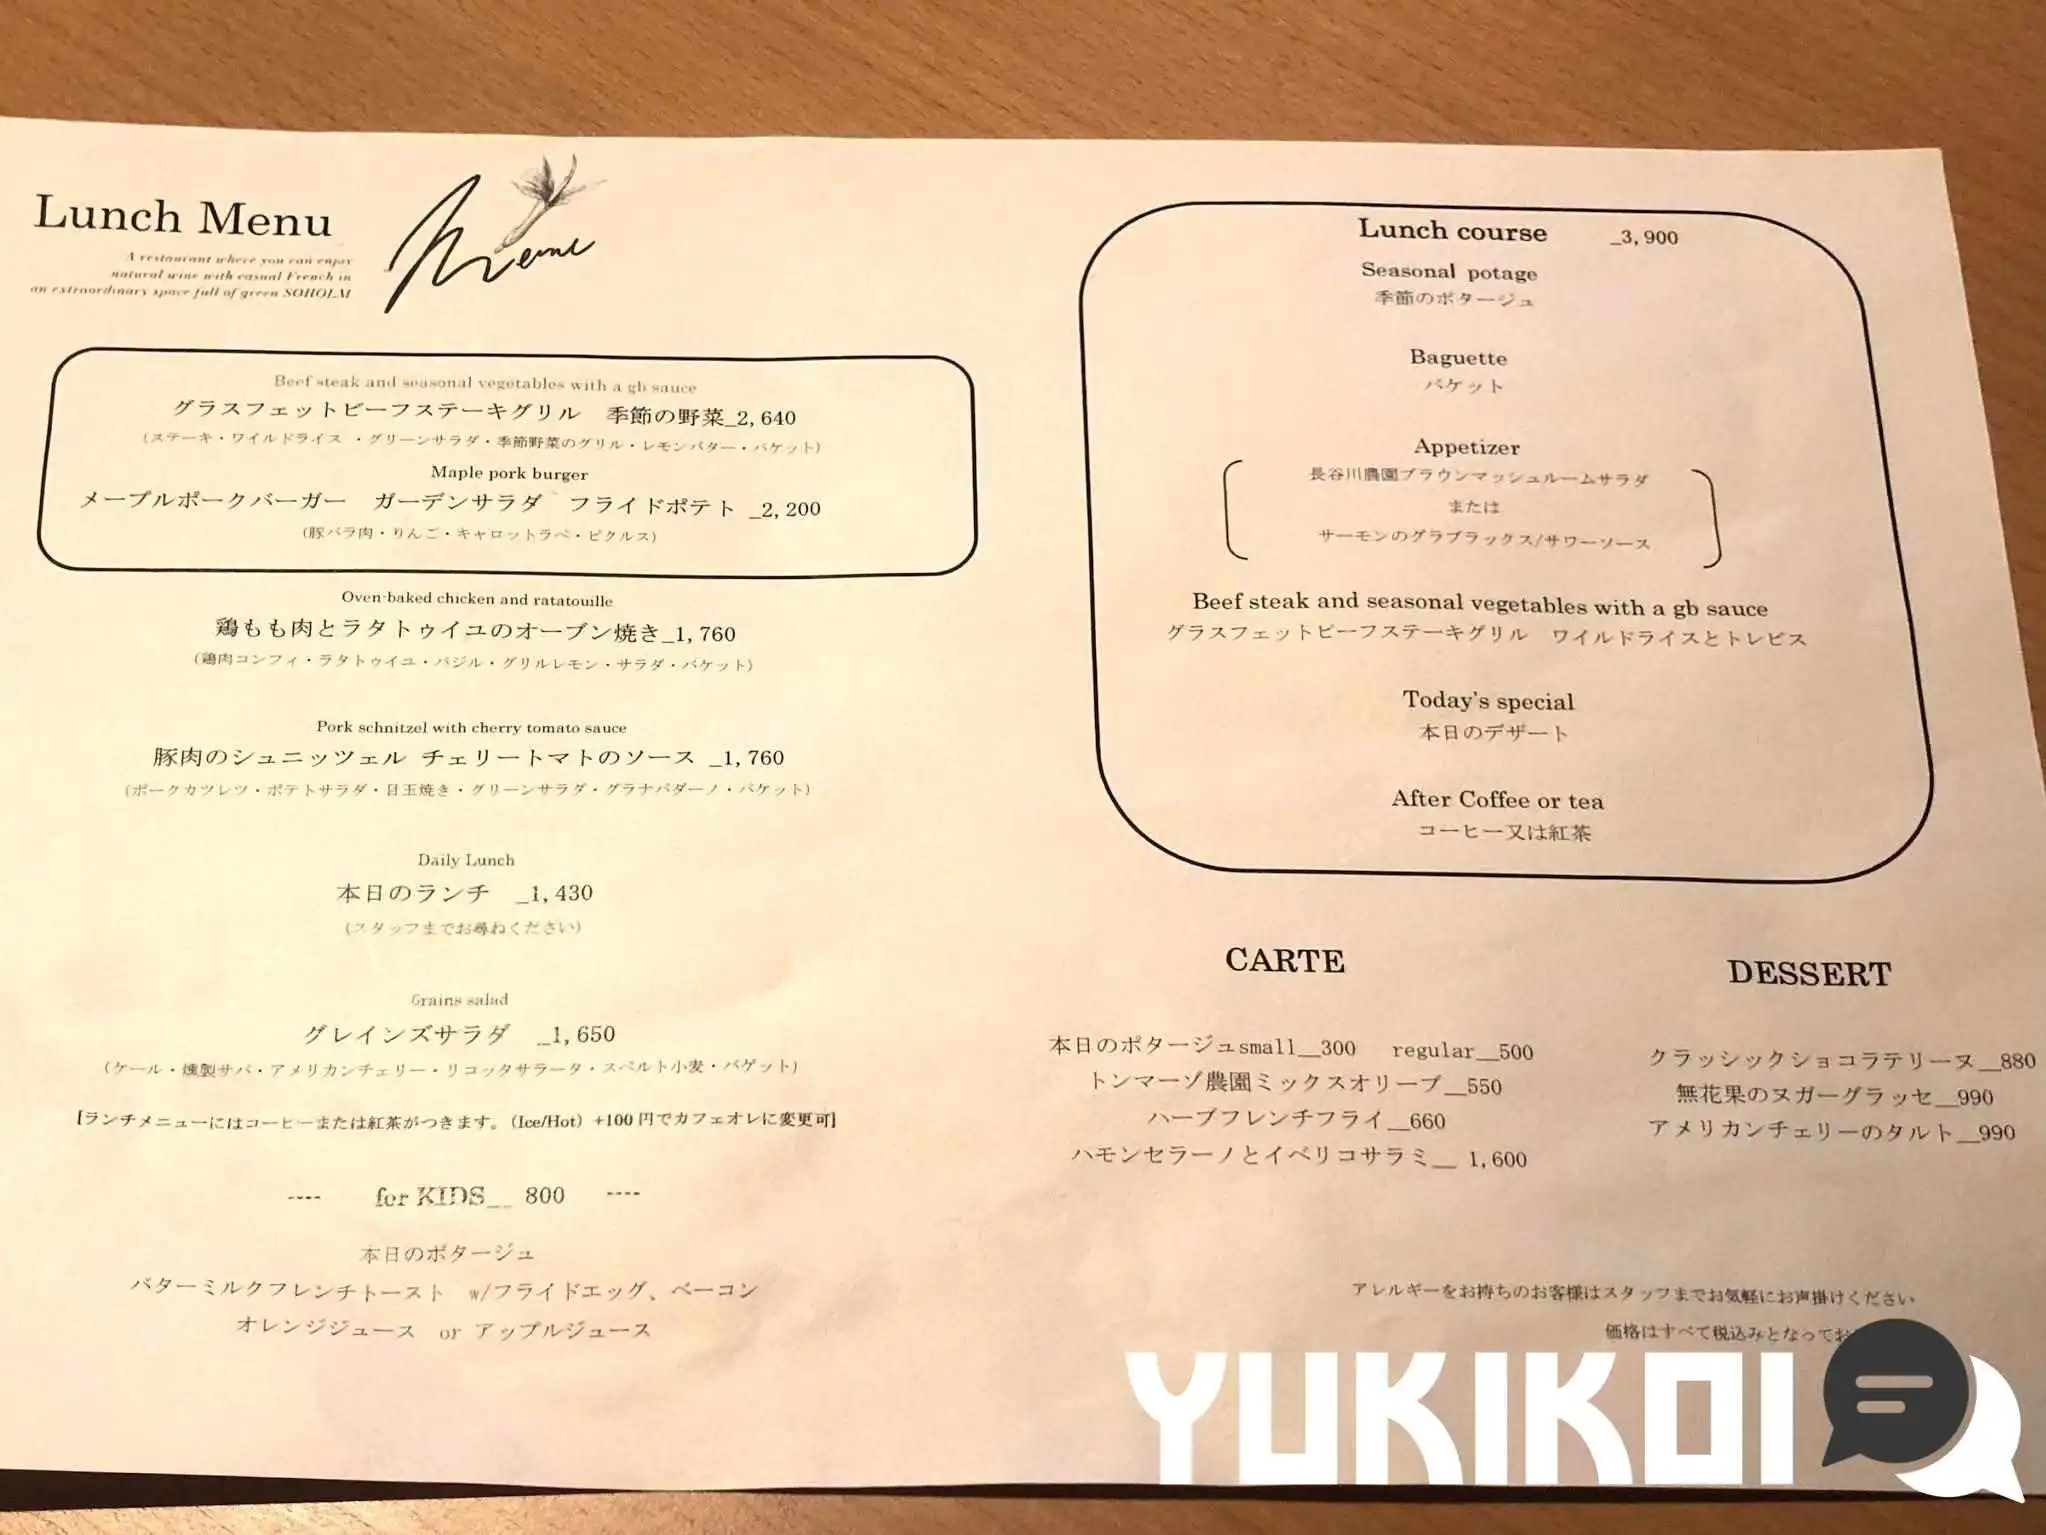 Lunch Menu
A restaurant where you can enjoy
natural wine with casual French in
an extraordinary space full of green SOHOLM
Menu
Beef steak and seasonal vegetables with a gb sauce
グラスフェットビーフステーキグリル 季節の野菜_2,640
(ステーキ・ワイルドライス・グリーンサラダ・季節野菜のグリル・レモンバター・バケット)
Maple pork burger
メープルポークバーガー ガーデンサラダ フライドポテト _2,200
(豚バラ肉・りんご・キャロットラペ・ピクルス)
Oven-baked chicken and ratatouille
鶏もも肉とラタトゥイユのオーブン焼き_1,760
(鶏肉コンフィ・ラタトゥイユ・バジル・グリルレモン・サラダ・バケット)
Pork schnitzel with cherry tomato sauce
豚肉のシュニッツェル チェリートマトのソース _1,760
(ポークカツレツ・ポテトサラダ・目玉焼き・グリーンサラダ・グラナパダーノ・バケット)
Daily Lunch
本日のランチ _1,430
(スタッフまでお尋ねください)
Grains salad
グレインズサラダ _1,650
(ケール・燻製サバ・アメリカンチェリー・リコッタサラータ・スペルト小麦・バゲット)
[ランチメニューにはコーヒーまたは紅茶がつきます。(Ice/Hot) +100円でカフェオレに変更可]
---- for KIDS__ 800 ----
本日のポタージュ
バターミルクフレンチトースト w/フライドエッグ、ベーコン
オレンジジュース or アップルジュース
Lunch course _3,900
Seasonal potage
季節のポタージュ
Baguette
バケット
Appetizer
長谷川農園ブラウンマッシュルームサラダ
または
サーモンのグラブラックス/サワーソース
Beef steak and seasonal vegetables with a gb sauce
グラスフェットビーフステーキグリル ワイルドライスとトレビス
Today's special
本日のデザート
After Coffee or tea
コーヒー又は紅茶
CARTE
本日のポタージュsmall__300 regular__500
トンマーゾ農園ミックスオリーブ__550
ハーブフレンチフライ__660
ハモンセラーノとイベリコサラミ__ 1,600
DESSERT
クラッシックショコラテリーヌ__880
無花果のヌガーグラッセ__990
アメリカンチェリーのタルト__990
アレルギーをお持ちのお客様はスタッフまでお気軽にお声掛けください
価格はすべて税込みとなってお
YUKIKOI